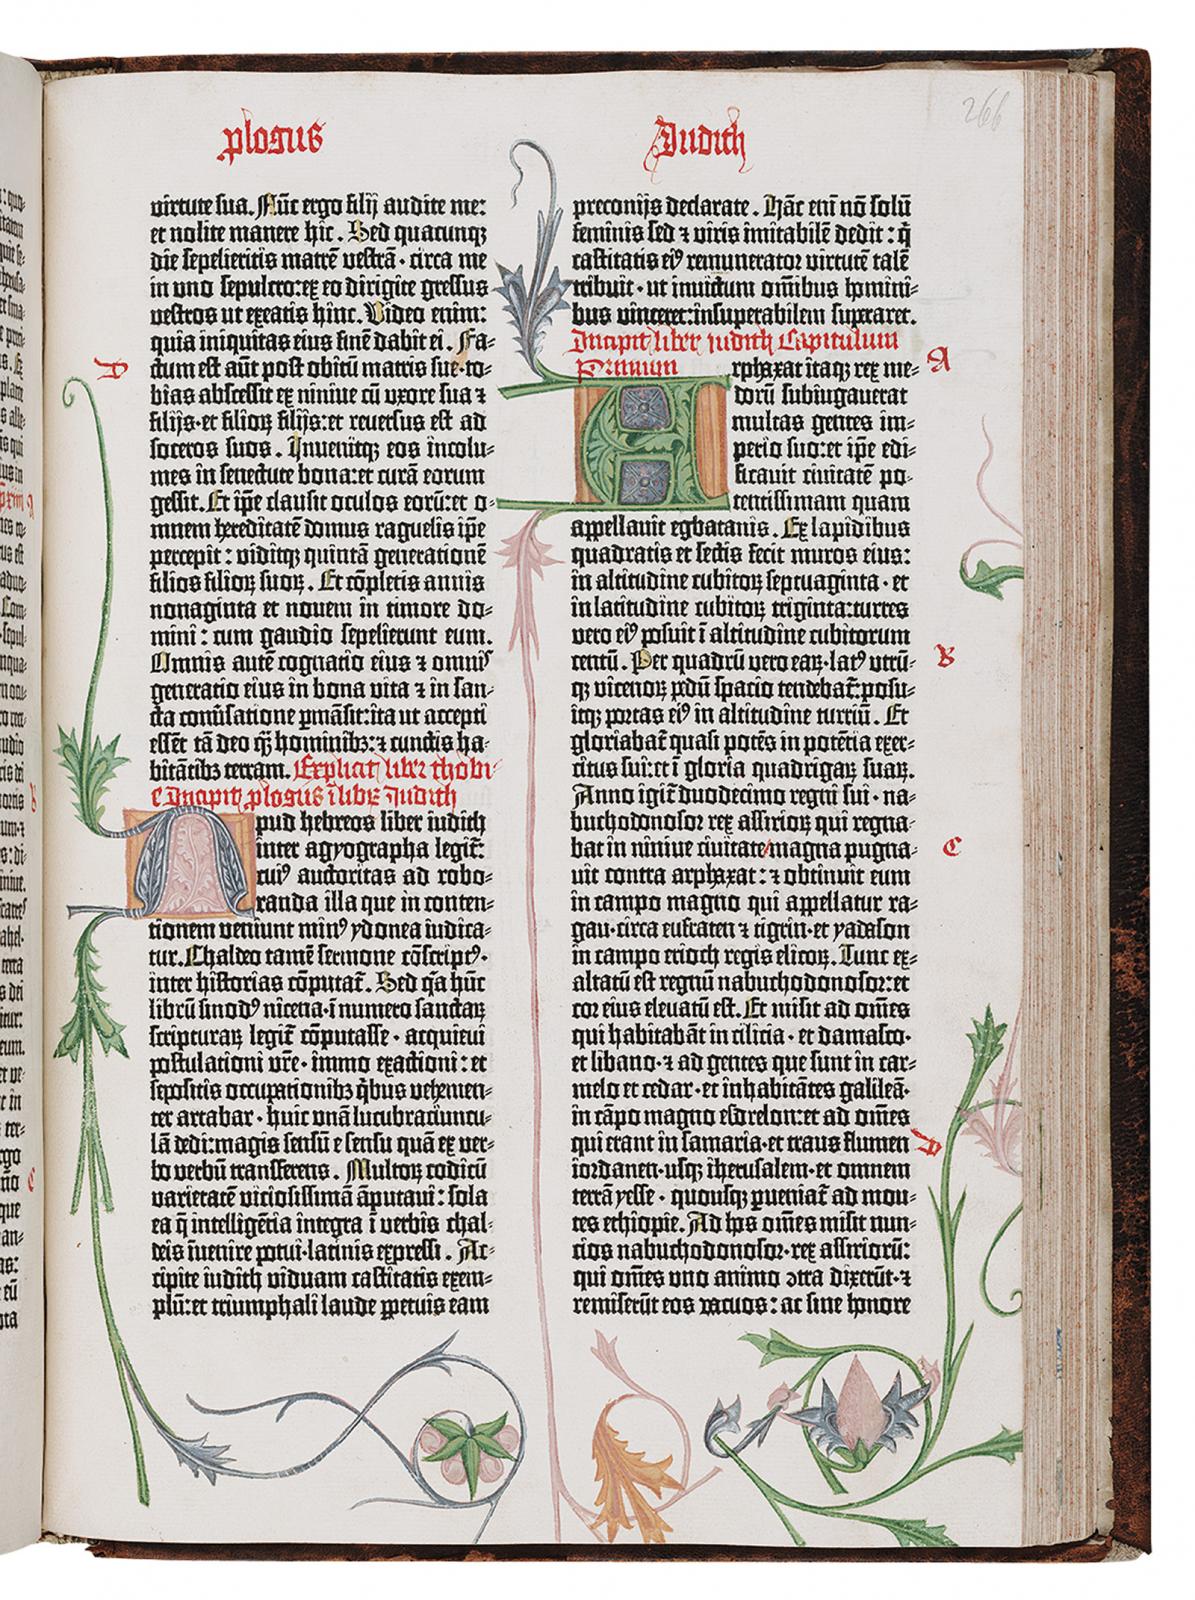 plogus
Judith
266
virtute sua. Nūc ergo filij audite me:
et nolite manere hic. Sed quacunqꝫ
die sepelieritis matrē vestrā · circa me
in uno sepulcro: ex eo dirigite gressus
vestros ut exeatis hinc. Video enim:
quia iniquitas eius finē dabit ei. Fa-
ctum est aūt post obitū matris sue · to-
bias abscessit ex ninive cū uxore sua ⁊
filijs · et filioꝝ filijs: et reversus est ad
soceros suos. Invenitqꝫ eos incolu-
mes in senectute bona: et curā eorum
gessit. Et ip̄e clausit oculos eorū: et o-
mnem hereditatē domus raguelis ip̄e
percepit: viditqꝫ quintā generationē
filios filioꝝ suoꝝ. Et cōpletis annis
nonaginta et novem in timore do-
mini: cum gaudio sepelierunt eum.
Omnis autē cognatio eius ⁊ omnis
generatio eius in bona vita ⁊ in san-
cta conv̄satione ꝑmāsit: ita ut accepti
essēt tā deo qꝫ hominibꝫ: ⁊ cunctis ha-
bitātibꝫ terram. Explicit liber thobi-
e Incipit plogus ī librꝫ Judith
Apud hebreos liber iudith
inter agyographa legit̄:
cuiꝰ auctoritas ad robo-
randa illa que in conten-
tionem veniunt minꝰ ydonea iudica-
tur. Chaldeo tamē sermone cōscriptꝰ ·
inter historias cōputat̄. Sed q̄a hūc
librū sinodꝰ nicena · ī numero sanctaꝝ
scripturaꝝ legit̄ cōputasse · acquievi
postulationi vr̄e · immo exactioni: et
sepositis occupationibꝫ q̄bus vehemen-
ter artabar · huic unā lucubraciuncu-
lā dedi: magis sensū e sensu quā ex ver-
bo verbū transferens. Multoꝝ codicū
varietatē viciosissimā āputavi: sola
ea q̄ intelligētia integra ī verbis chal-
deis īvenire potui · latinis expressi. Ac-
cipite iudith viduam castitatis exem-
plū: et triumphali laude ꝑpetuis eam
preconijs declarate. Hāc eni nō solū
feminis sed ⁊ viris imitabilē dedit: q̄
castitatis eiꝰ remunerator virtutē talē
tribuit · ut invictum om̄ibus homini-
bus vinceret: insuperabilem supāret.
Incipit liber iudith Capitulum
Primum
Arphaxat itaqꝫ rex me-
dorū subiugaverat
multas gentes im-
perio suo: et ip̄e edi-
ficavit civitatē po-
tentissimam quam
appellavit egbatanis. Ex lapidibus
quadratis et sectis fecit muros eius:
in altitudine cubitoꝝ septuaginta · et
in latitudine cubitoꝝ triginta: turres
vero eiꝰ posuit ī altitudine cubitorum
centū. Per quadrū vero eaꝝ · latꝰ utrū-
qꝫ vicenoꝝ pedū spacio tendebat̄: posu-
itqꝫ portas eiꝰ in altitudine turriū. Et
gloriabat̄ quasi potēs in potētia exer-
citus sui: et ī gloria quadrigaꝝ suaꝝ.
Anno igit̄ duodecimo regni sui · na-
buchodonosor rex assirioꝝ qui regna-
bat in ninive civitate magna pugna-
vit contra arphaxat: ⁊ obtinuit eum
in campo magno qui appellatur ra-
gau · circa eufraten ⁊ tigrin · et yadason
in campo erioch regis elicoꝝ. Tunc ex-
altatū est regnū nabuchodonosor: et
cor eius elevatū est. Et misit ad om̄es
qui habitabāt in cilicia · et damasco ·
et libano · ⁊ ad gentes que sunt in car-
melo et cedar · et inhabitātes galileā ·
in cāpo magno esdrelon: et ad om̄es
qui erant in samaria · et trans flumen
iordanen · usqꝫ iherusalem · et omnem
terrā yesse · quousqꝫ ꝑveniat̄ ad mon-
tes ethiopie. Ad hos om̄es misit nun-
cios nabuchodonosor · rex assiriorū:
qui om̄es uno animo ↄtra dixerūt · ⁊
remiserūt eos vacuos: ac sine honore
A
B
C
D